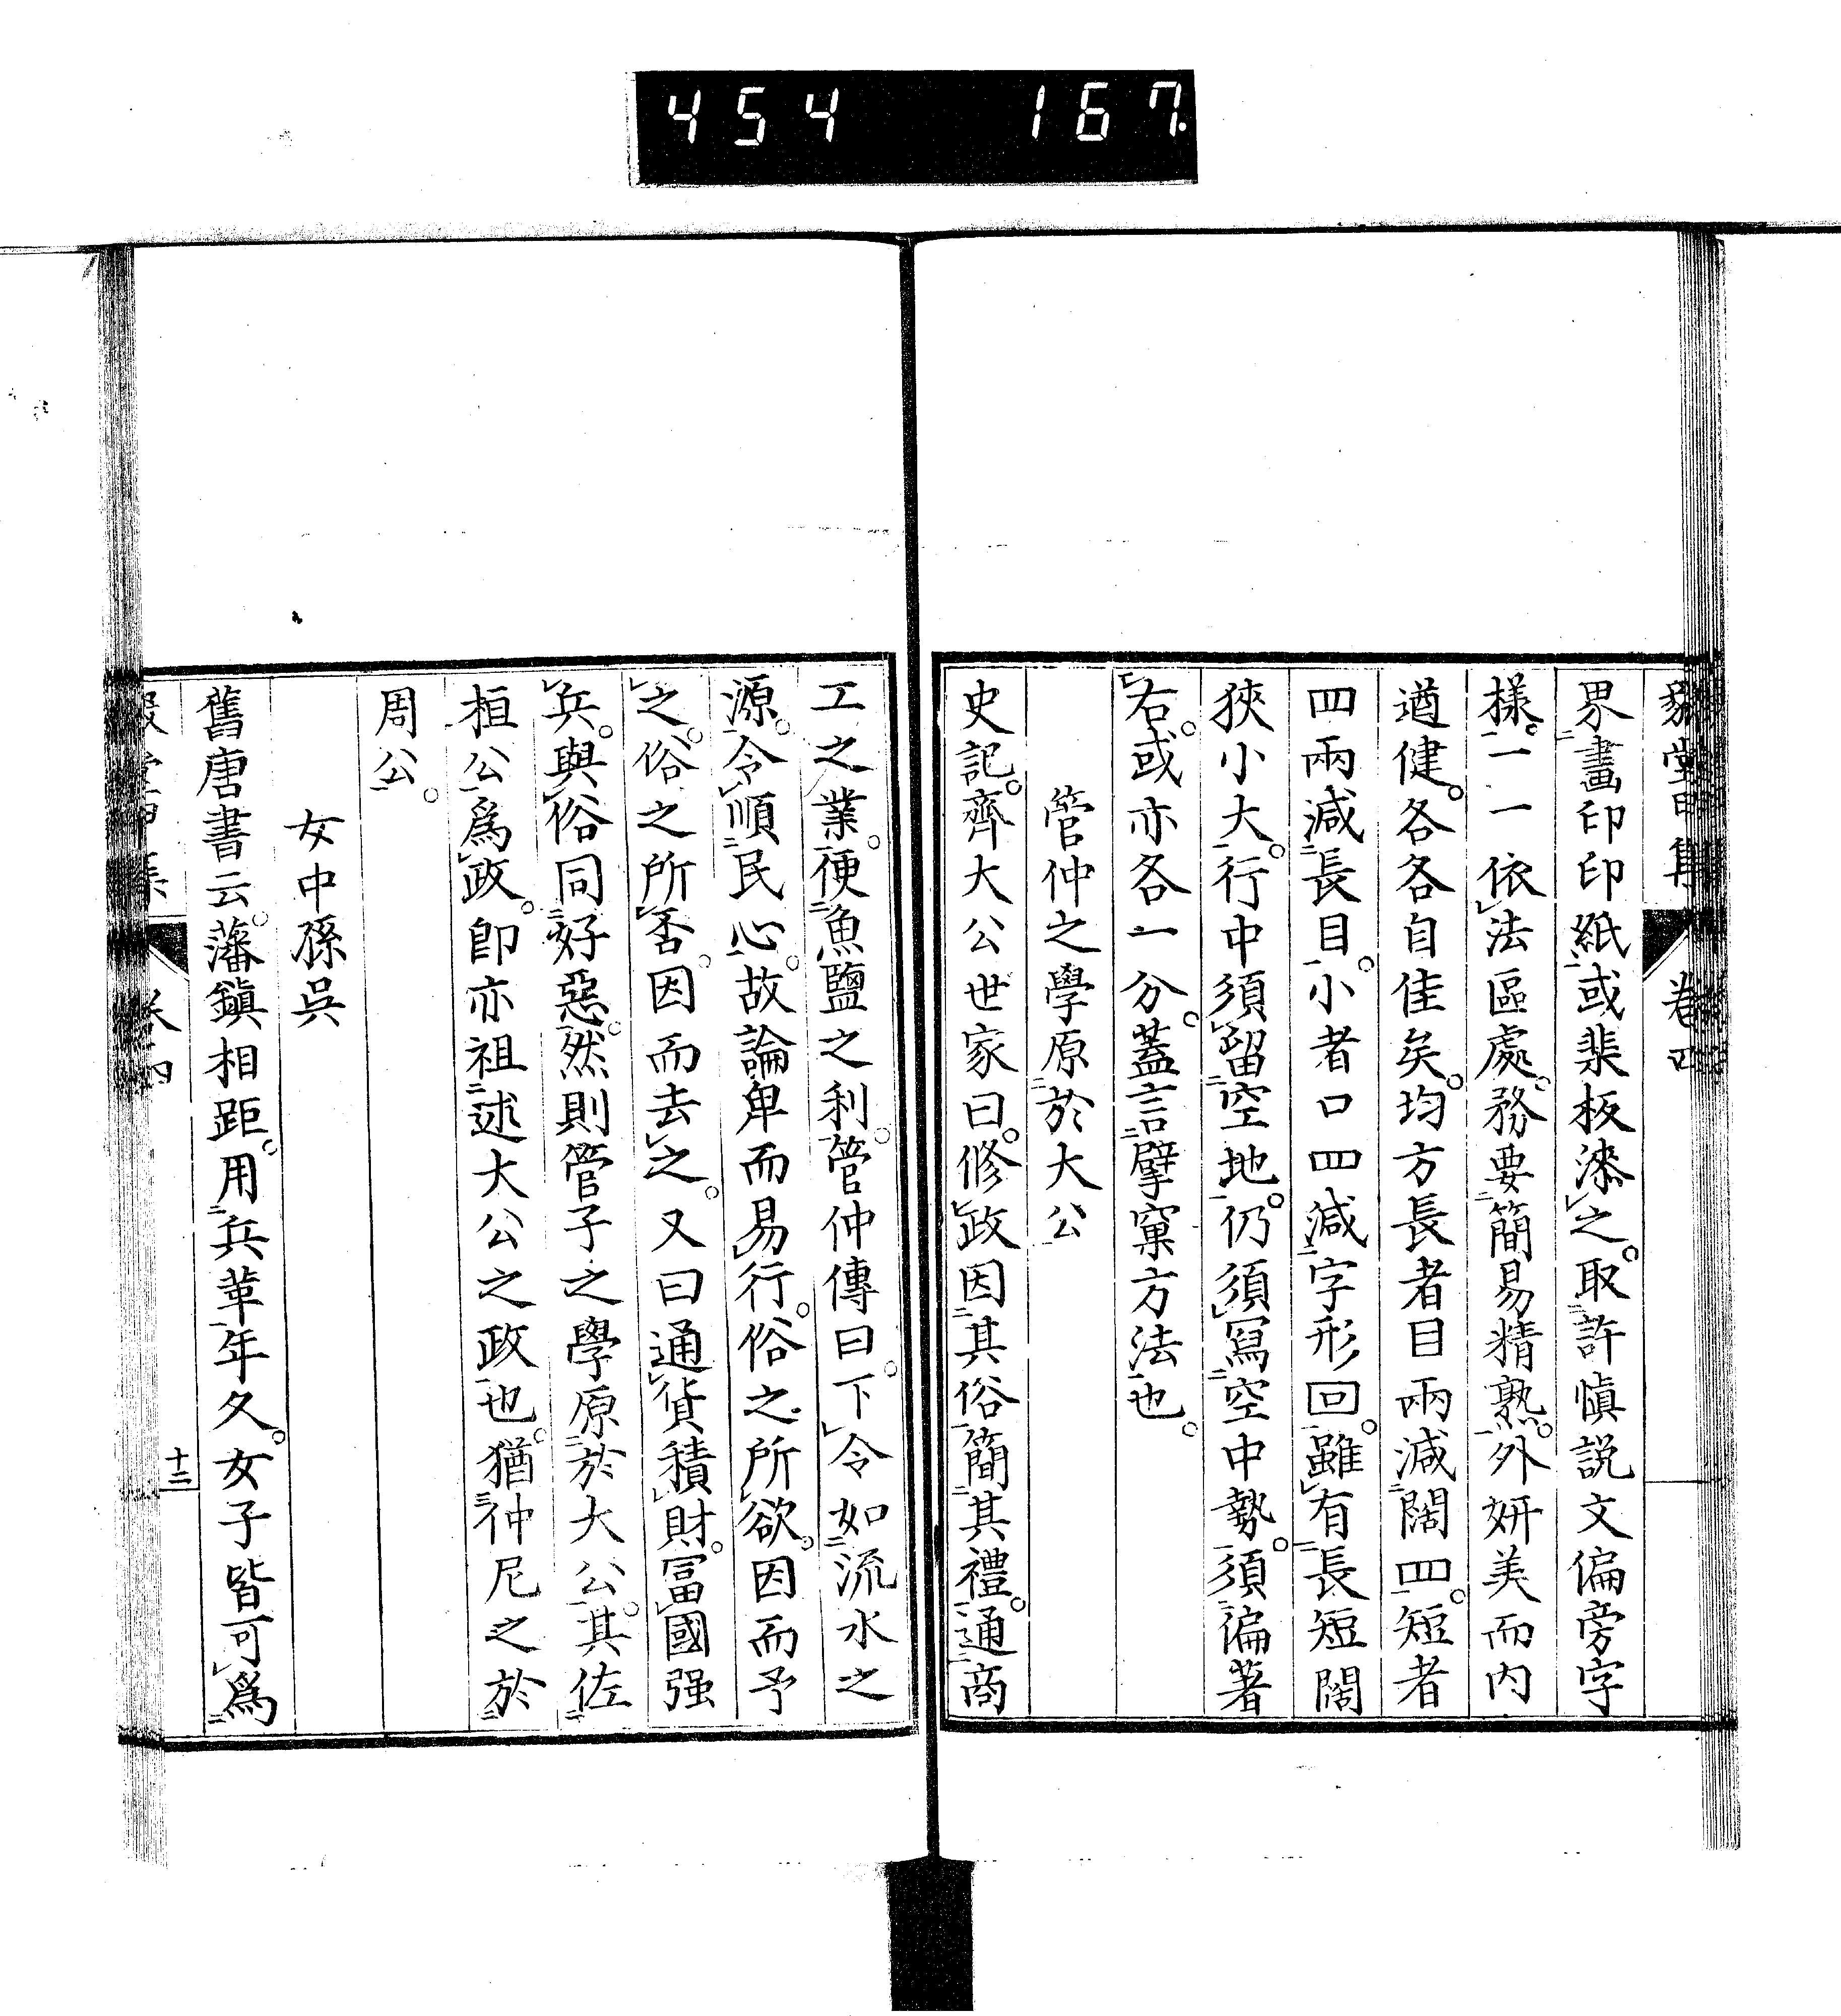 454 167
界畫印印紙或棐板漆之。取許愼説文偏旁字
樣。一一依法區處。務要簡易精熟。外妍美而内
遒健。各各自佳矣。均方長者目兩減闊四。短者
四兩減長目。小者口四減字形回。雖有長短闊
狹小大。行中須留空地。仍須寫空中勢。須徧著
右。或亦各一分。蓋言擘窠方法也。
管仲之學原於大公
史記。齊大公世家曰。修政因其俗簡其禮。通商
工之業。便魚鹽之利。管仲傳曰。下令如流水之
源。令順民心。故論卑而易行。俗之所欲。因而予
之。俗之所否。因而去之。又曰通貨積財。富國强
兵。與俗同好惡。然則管子之學原於大公。其佐
桓公爲政。卽亦祖述大公之政也。猶仲尼之於
周公。
女中孫吳
舊唐書云。藩鎭相距。用兵革年久。女子皆可爲
卷四
十二